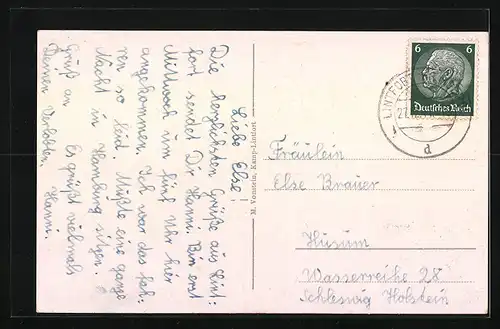 Liebe Else!
Die herzlichsten Grüße aus Lint:
fort sendet Dir Hanni. Bin erst
Mittwoch um fünf Uhr hier
angekommen. Ich war das fah:
ren so leid. Mußte eine ganze
Nacht in Hamburg sitzen.
Es grüßt vielmals
Hanni.
Gruß an
Deinen Verlobten.
M. Vonstein, Kamp-Lintfort
6 6
Deutsches Reich
LINTFORT
d
Fräulein
Else Brauer
Husum
Wasserreihe 28
Schleswig Holstein